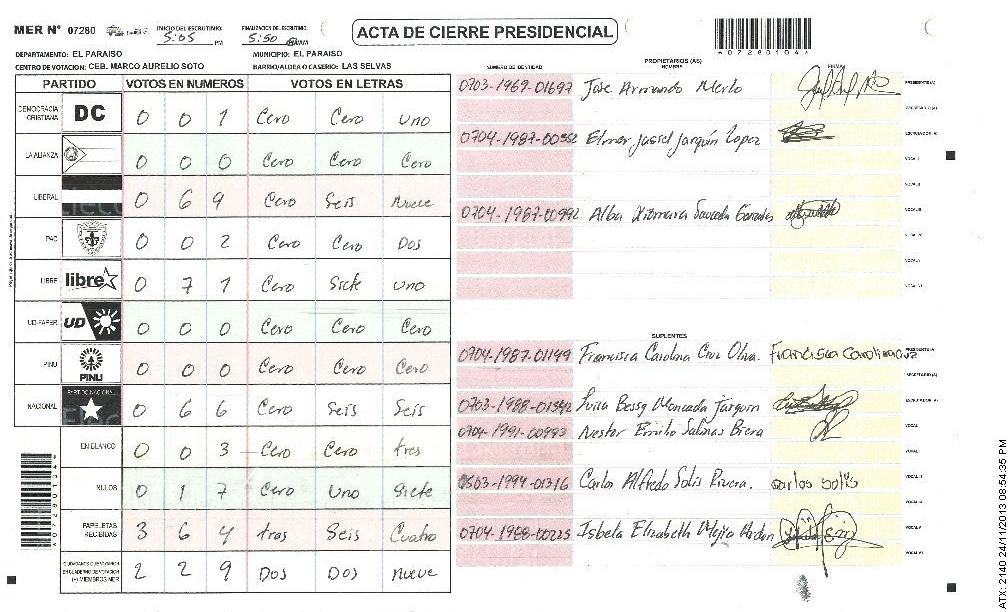 MER Nº 07280
INICIO DEL ESCRUTINIO: 5:05 PM
FINALIZACION DEL ESCRUTINIO: 5:50
ACTA DE CIERRE PRESIDENCIAL
DEPARTAMENTO: EL PARAISO
MUNICIPIO: EL PARAISO
CENTRO DE VOTACION: CEB. MARCO AURELIO SOTO
BARRIO/ALDEA O CASERIO: LAS SELVAS
PARTIDO VOTOS EN NUMEROS VOTOS EN LETRAS
DEMOCRACIA CRISTIANA DC 0 0 1 Cero Cero Uno
LA ALIANZA 0 0 0 Cero Cero Cero
LIBERAL 0 6 9 Cero Seis Nueve
PAC 0 0 2 Cero Cero Dos
LIBRE libre 0 7 1 Cero Siete Uno
UD-FAPER UD 0 0 0 Cero Cero Cero
PINU PINU 0 0 0 Cero Cero Cero
NACIONAL PARTIDO NACIONAL 0 6 6 Cero Seis Seis
EN BLANCO 0 0 3 Cero Cero tres
NULOS 0 1 7 Cero Uno Siete
PAPELETAS RECIBIDAS 3 6 4 tres Seis Cuatro
(+) MIEMBROS MER 2 2 9 Dos Dos Nueve
4072801044
NUMERO DE IDENTIDAD
PROPIETARIOS (AS)
NOMBRE
FIRMA
0703-1969-01697 Jose Armando Merlo PRESIDENTE (A)
SECRETARIO (A)
0704-1987-00352 Elmer Jassel Jarquin Lopez ESCRUTADOR (A)
VOCAL I
VOCAL II
0704-1987-00992 Alba Xiomara Sauceda Gonzales VOCAL III
VOCAL IV
VOCAL V
VOCAL VI
SUPLENTES
0704-1987-01149 Francisca Carolina Cruz Oliva. Francisca Carolina cruz PRESIDENTE (A)
SECRETARIO (A)
0703-1988-01342 Luisa Bessy Moncada Jarquin ESCRUTADOR (A)
0704-1991-00993 Nestor Emilio Salinas VOCAL I
VOCAL II
0503-1994-01316 Carlos Alfredo Solis Rivera. carlos solis VOCAL III
VOCAL IV
0704-1988-00225 Isbela Elizabeth Mejia VOCAL V
VOCAL VI
ATX: 2140 24/11/2013 08:54:35 PM